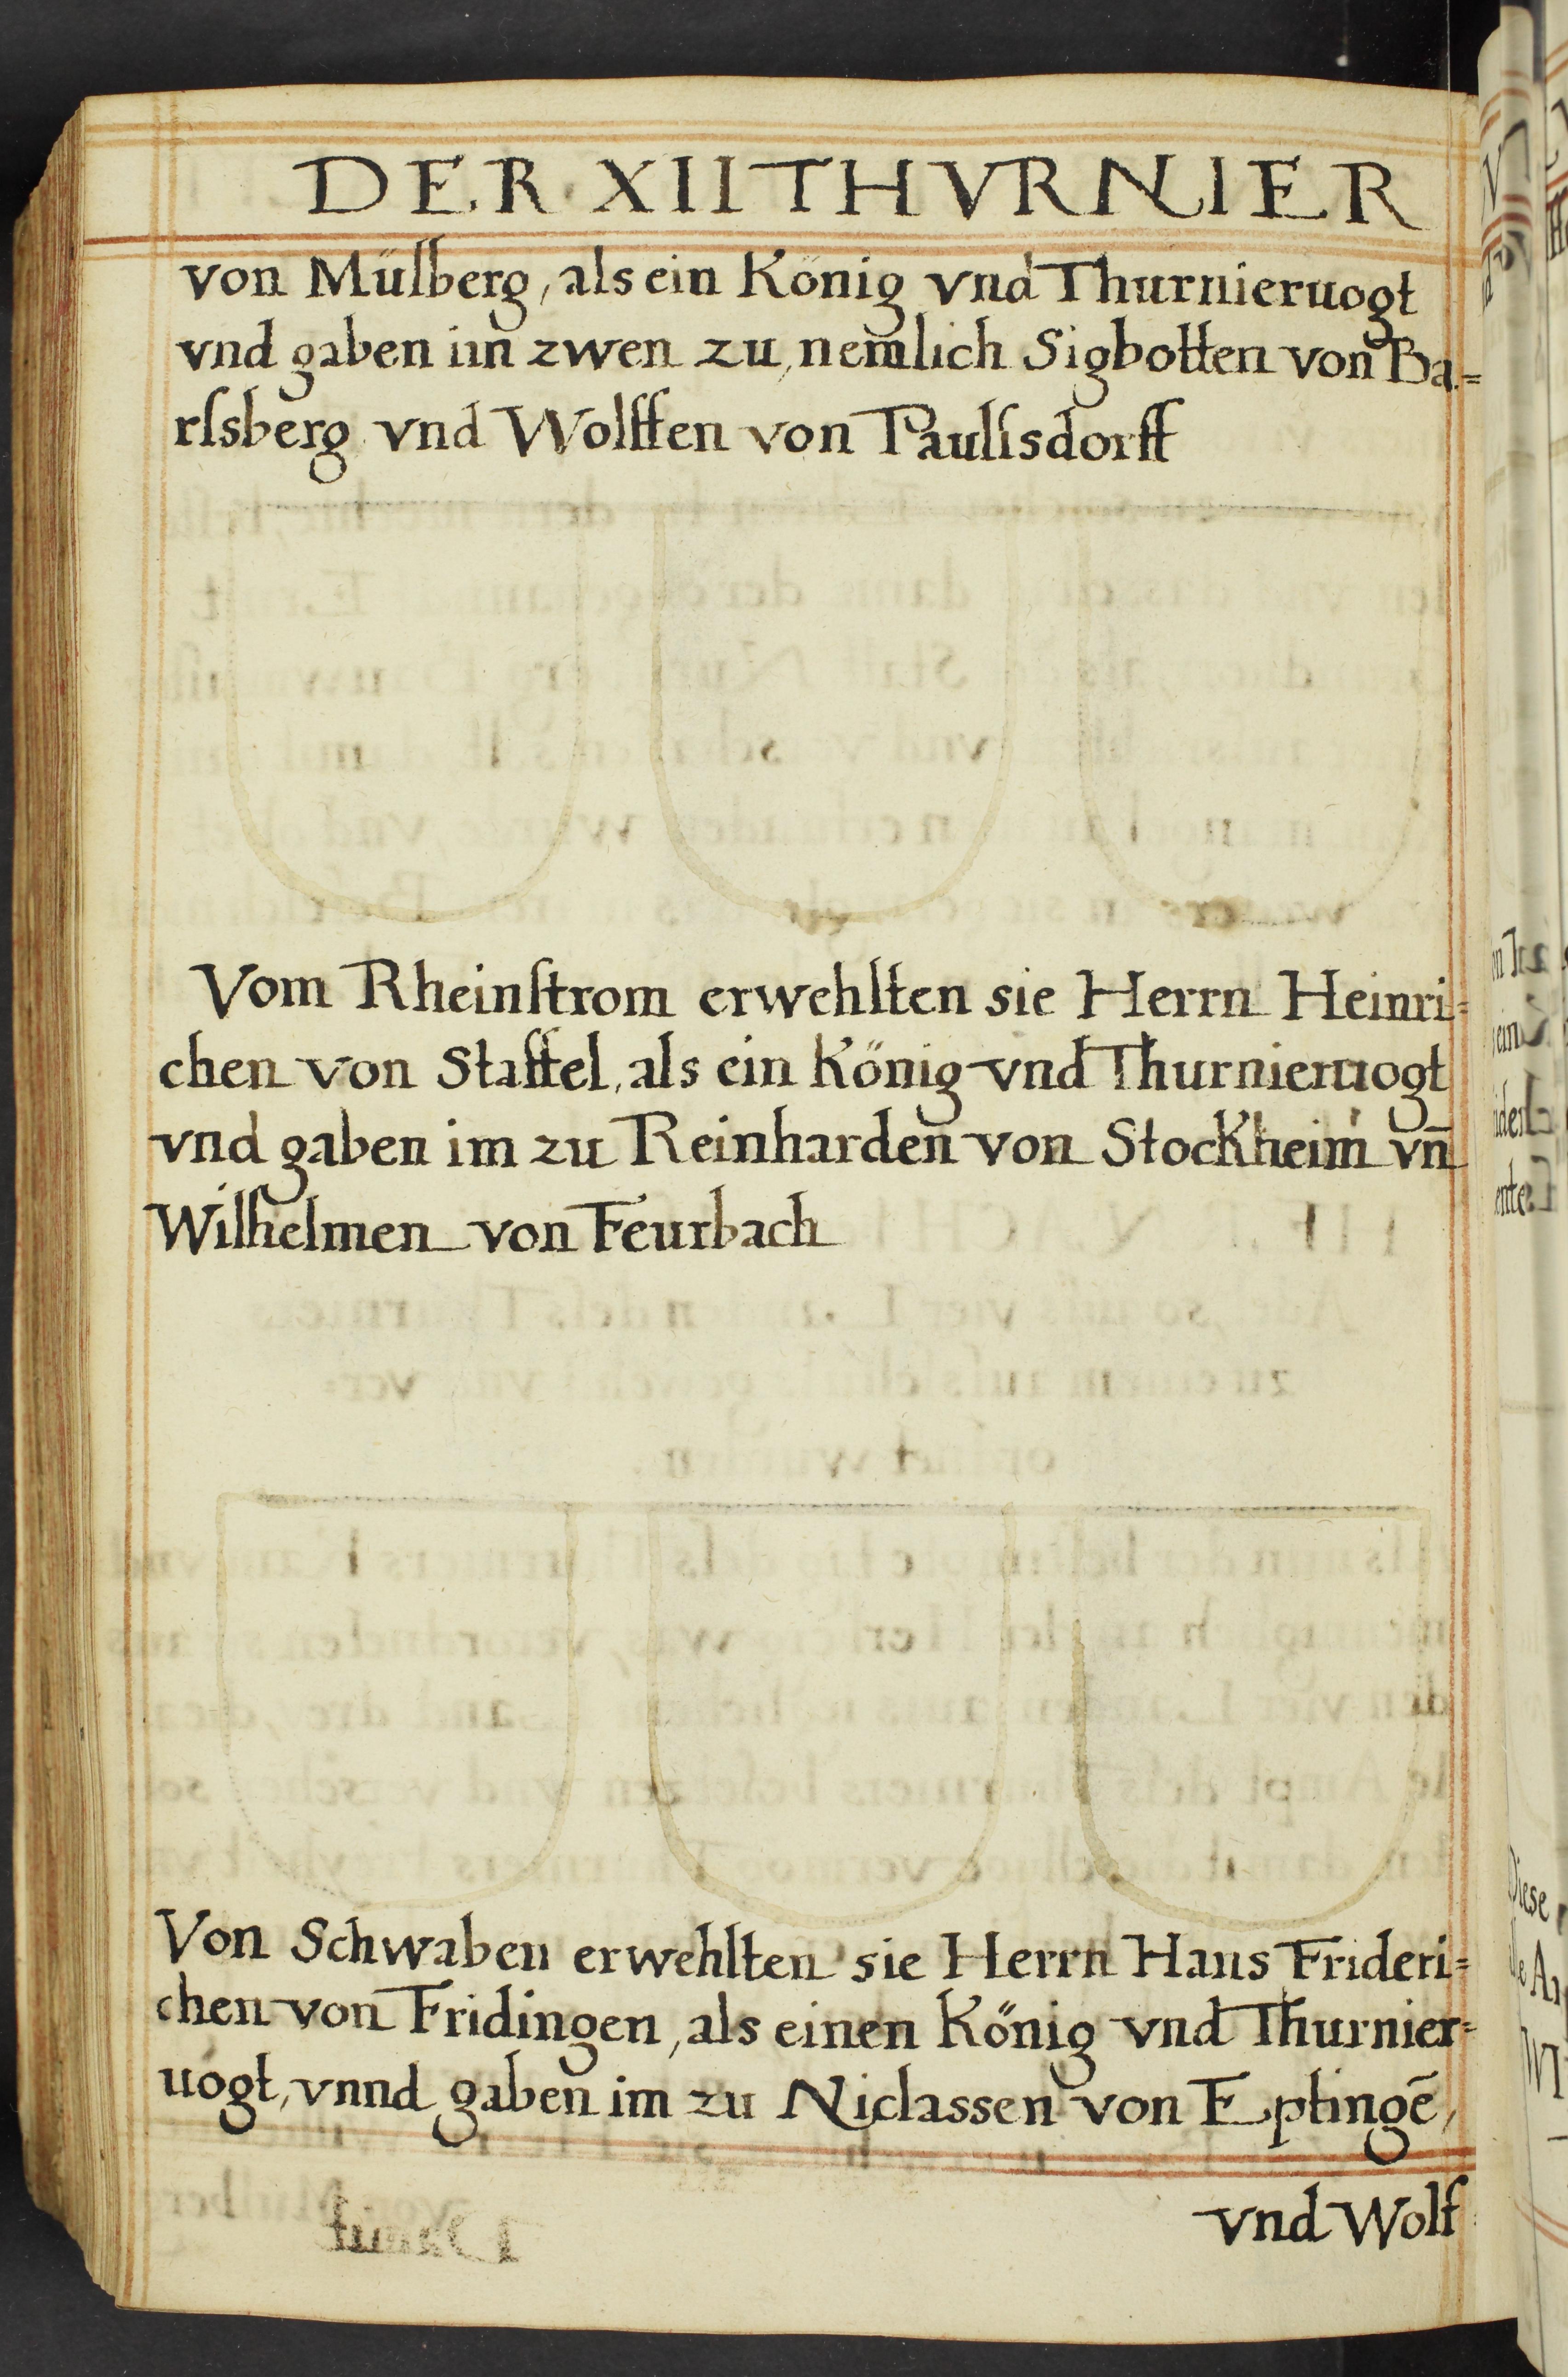 DER XII THVRNIER
von Mülberg, als ein König vnd Thurnieruogt
vnd gaben im zwen zu, nemlich Sigbotten von Ba=
rlsberg vnd Wolffen von Paulsdorff
Vom Rheinſtrom erwehlten sie Herrn Heinri=
chen von Staffel, als ein König vnd Thurnieruogt
vnd gaben im zu Reinharden von Stockheim vn̄
Wilhelmen von Feurbach
Von Schwaben erwehlten sie Herrn Hans Frideri=
chen von Fridingen, als einen König vnd Thurnier=
uogt, vnnd gaben im zu Niclassen von Eptingē,
vnd Wolf